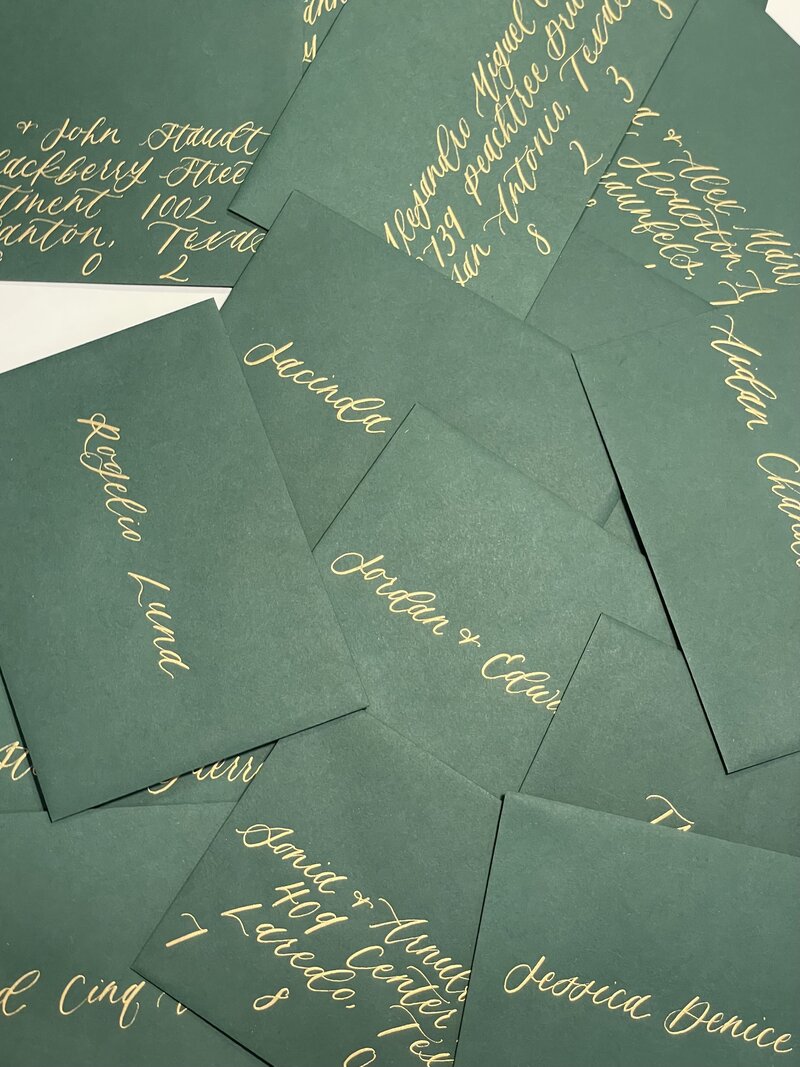 & John Staudt
ackberry Stree
tment 1002
anton, Texas
0 2
Alejandro Miguel
739 Peachtree Driv
San Antonio, Texas
8 2 3
& Alex Mari
Houston
aunfels,
Jacinda
Aidan Chand
Rogelio Lund
Jordan & Edwi
Sonia & Arnul
409 Center
Laredo, Tex
7 8 0
Cinq
Jessica Denice